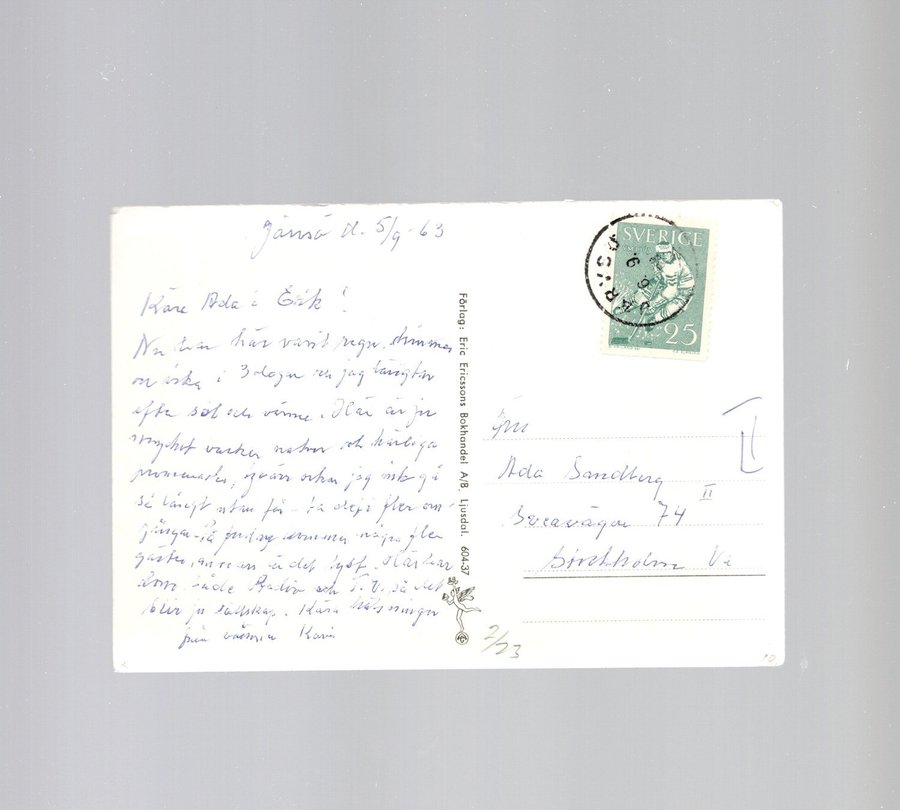 Järvsö d. 5/9-63
Kära Ada o Erik!
Nu har här varit regn, dimma
och åska i 3 dagar och jag längtar
efter sol och värme. Här är ju
mycket vacker natur och härliga
promenader, tyvärr orkar jag inte gå
så långt utan får ta dem i fler om-
gångar. På fredag kommer några fler
gäster, annars är det tyst. Här har
dom både Radio och T.V. så det
blir ju sällskap. Kära hälsningar
från vännen Karin
Förlag: Eric Ericssons Bokhandel A/B, Ljusdal. 604-37
SVERIGE
25
JÄRVSÖ
6 9
Fru
Ada Sandberg
Sveavägen 74 II
Stockholm Va
2/23